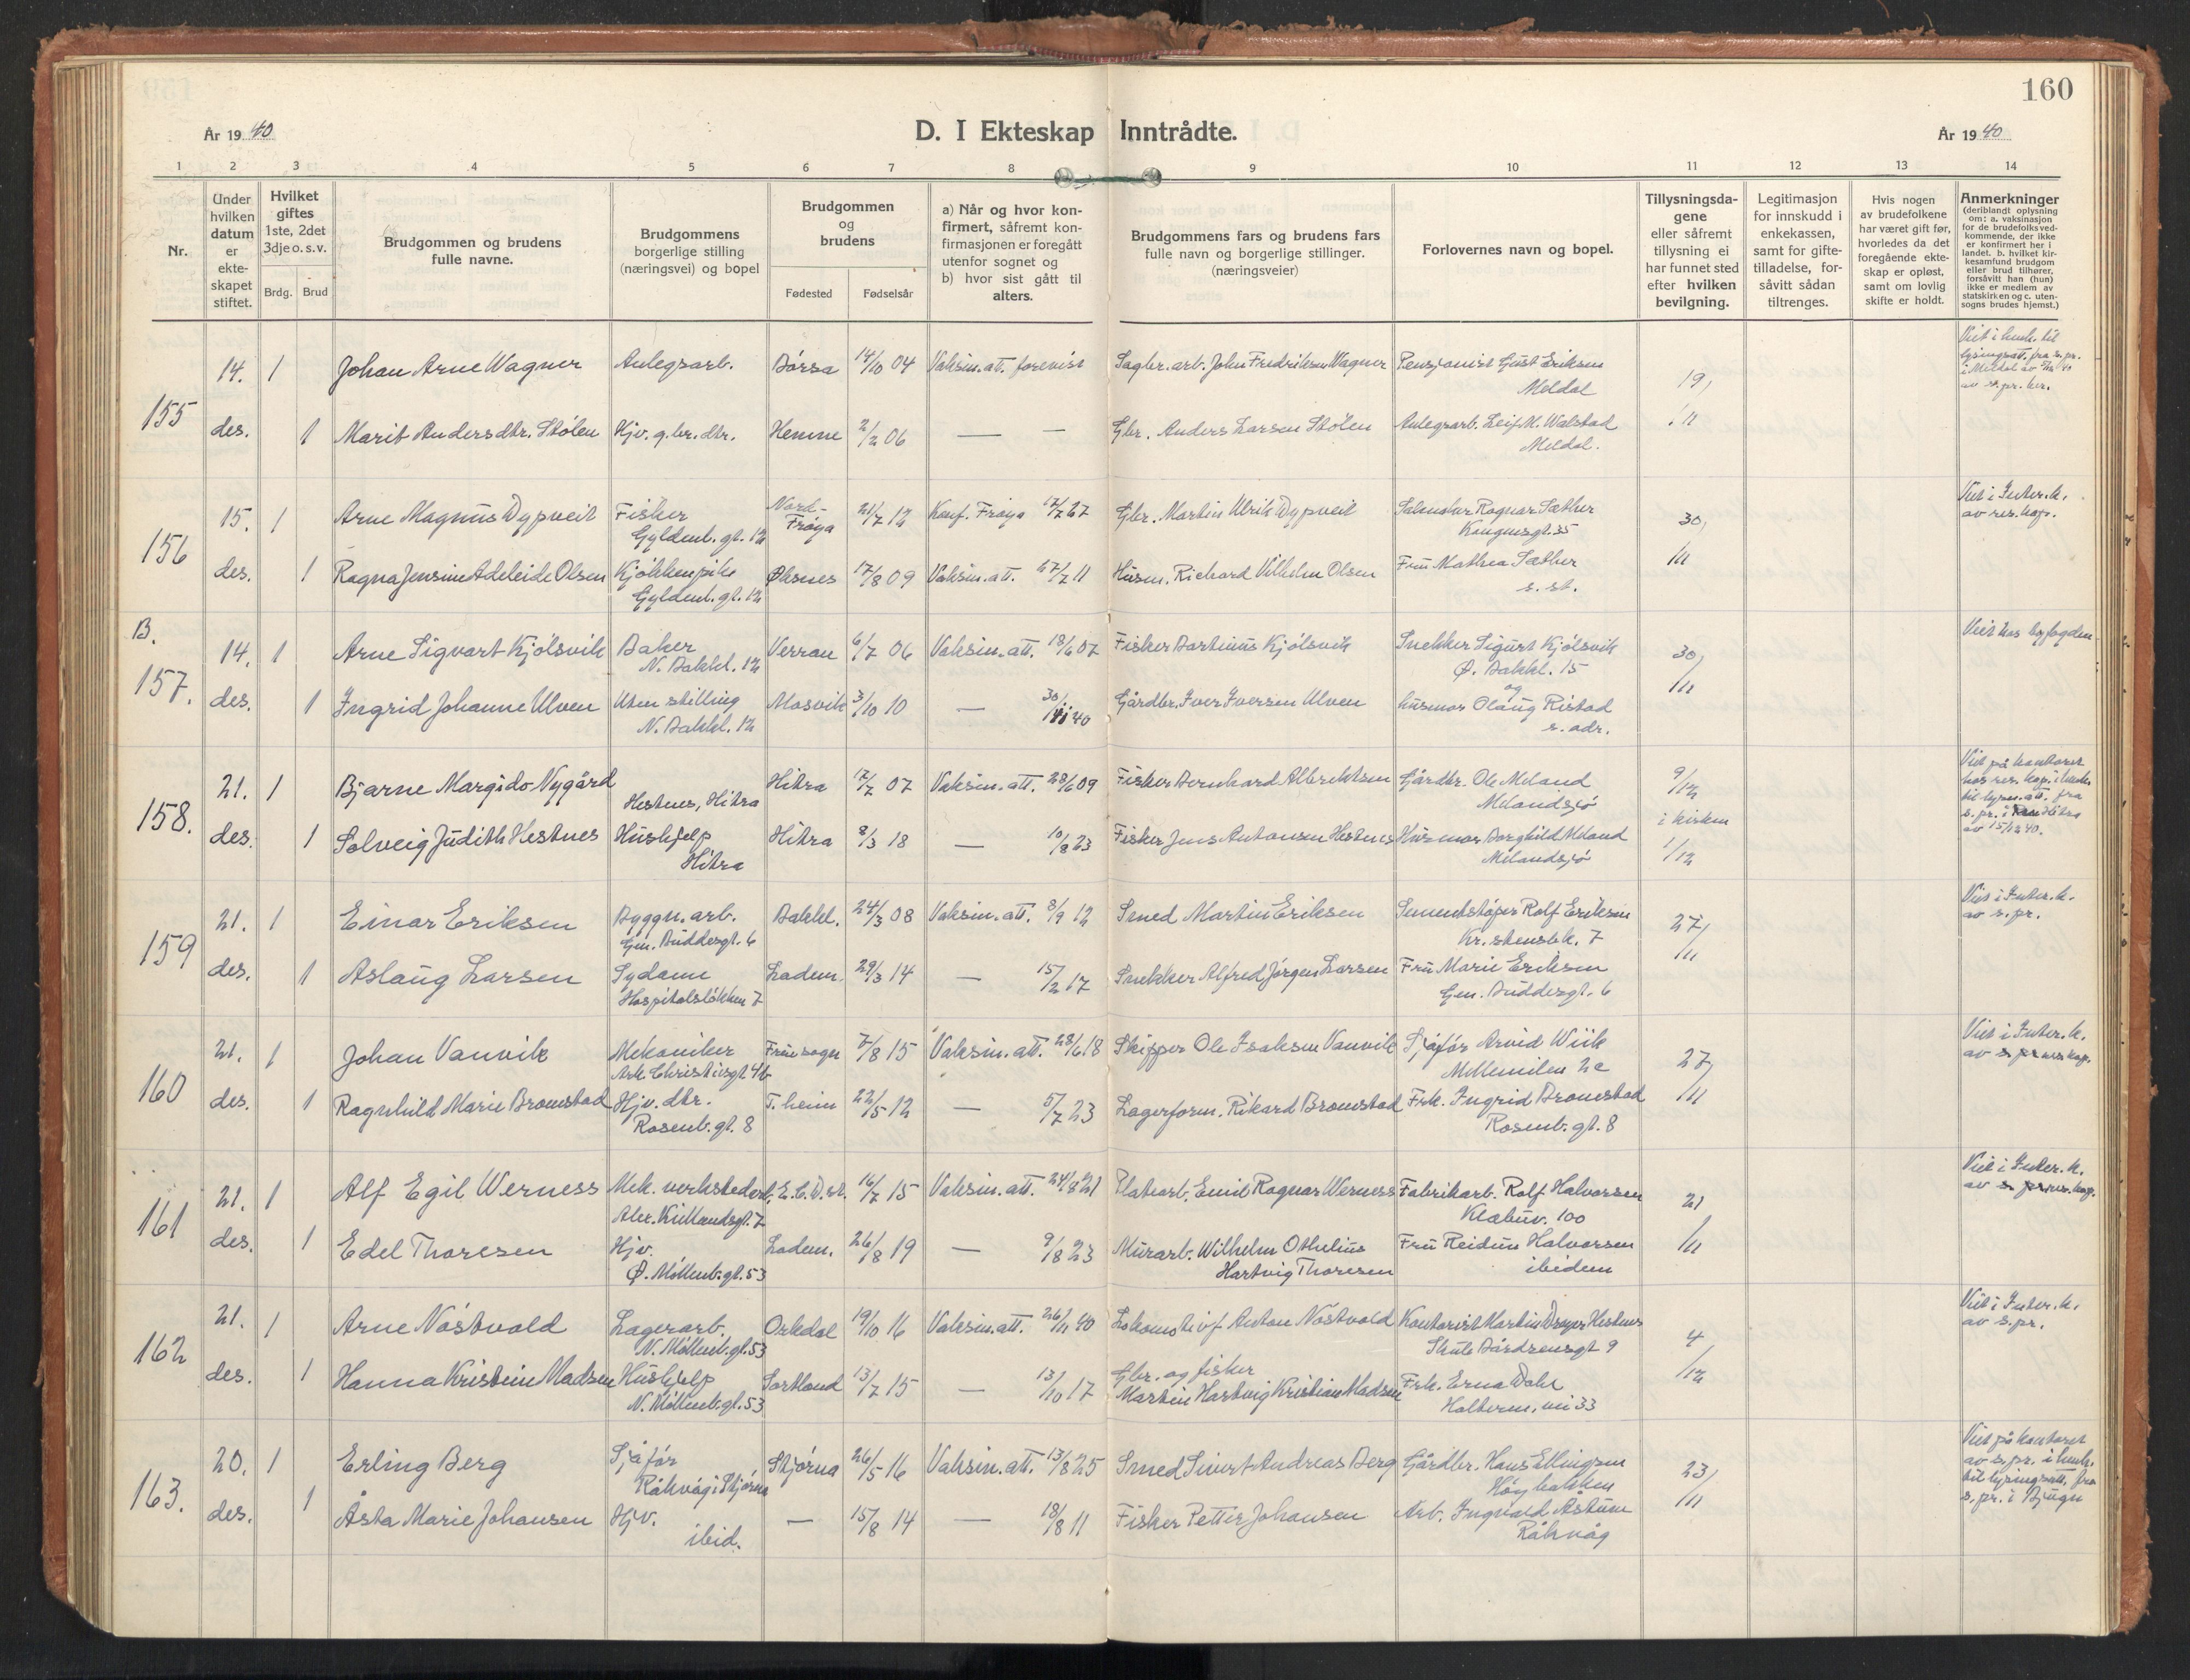 160
År 19 40
D. I Ekteskap Inntrådte.
År 19 40
1 2 3 4 5 6 7 8 9 10 11 12 13 14
Nr.
Under hvilken datum er ekte-skapet stiftet.
Hvilket giftes 1ste, 2det 3dje o. s. v.
Brdg. Brud
Brudgommen og brudens fulle navne.
Brudgommens borgerlige stilling (næringsvei) og bopel
Brudgommen og brudens
Fødested Fødselsår
a) Når og hvor kon-firmert, såfremt kon-firmasjonen er foregått utenfor sognet og b) hvor sist gått til alters.
Brudgommens fars og brudens fars fulle navn og borgerlige stillinger. (næringsveier)
Forlovernes navn og bopel.
Tillysningsda-gene eller såfremt tillysning ei har funnet sted efter hvilken bevilgning.
Legitimasjon for innskudd i enkekassen, samt for gifte-tilladelse, for-såvitt sådan tiltrenges.
Hvis nogen av brudefolkene har været gift før, hvorledes da det foregående ekte-skap er opløst, samt om lovlig skifte er holdt.
Anmerkninger (deriblandt oplysning om: a. vaksinasjon for de brudefolks ved-kommende, der ikke er konfirmert her i landet. b. hvilket kir-kesamfund brudgom eller brud tilhører, forsåvitt han (hun) ikke er medlem av statskirken og c. uten-sogns brudes hjemst.)
155
14. 1 Johan Arne Wagner Anlegsarb. Børsa 14/10 04 Vaksin. att. forevist Sagbr. arb. John Fredriksen Wagner Pensjonist Gust Eriksen Meldal 19/11
des. 1 Marit Andersdtr. Stølen Hjv. g.br. dtr. Hemne 2/2 06 — — Gbr. Anders Larsen Stølen Anlegsarb. Leif M. Walstad Meldal.
156
15. 1 Arne Magnus Dypveit Fisker Gyldenl. gt. 12 Nord-Frøya 21/7 12 Konf. Frøya 17/7 27 Gbr. Martin Ulrik Dypveit Ragnar Sæther Kongensgt. 35 30/11 Viet i Inter. k. av res. kap.
des. 1 Ragna Jensine Adeleide Olsen Kjøkkenpike Gyldenl. gt. 12 Øksnes 17/8 09 Vaksin. att. 27/7 11 Husm. Richard Vilhelm Olsen Fru Mathea Sæther s. st.
B.
157.
14. 1 Arne Sigvart Kjølsvik Baker N. Bakkl. 12 Verran 6/7 06 Vaksin. att. 18/6 07 Fisker Bartinus Kjølsvik Snekker Sigurt Kjølsvik Ø. Bakkl. 15 og 30/11 Viet hos byfogden
des. 1 Ingrid Johanne Ulven Uten stilling N. Bakkl. 12 Mosvik 3/10 10 — 30/11 40 Gårdbr. Iver Iversen Ulven husmor Olaug Ristad s. adr.
158.
21. 1 Bjarne Margido Nygård Hestnes, Hitra Hitra 17/7 07 Vaksin. att. 28/6 09 Fisker Bernhard Albrektsen Gårdbr. Ole Meland Melandsjø 9/12 i kirken
des. 1 Solveig Judith Hestnes Hushjelp Hitra Hitra 8/3 18 — 10/8 23 Fisker Jens Antonsen Hestnes Husmor Borghild Meland Melandsjø 1/12
Viet på kontoret hos res. kap. i henh. til lysn. att. fra s. pr. i Hitra av 15/12 40.
159
21. 1 Einar Eriksen Byggn. arb. Gen. Buddesgt. 6 Bakkl. 24/3 08 Vaksin. att. 8/9 12 Smed Martin Eriksen Sementstøper Rolf Eriksen Kr. stensbk. 7 27/11 Viet i Inter. k. av s. pr.
des. 1 Aslaug Larsen Sydame Hospitalsløkken 7 Ladem. 29/3 14 — 15/2 17 Snekker Alfred Jørgen Larsen Fru Marie Eriksen Gen. Buddesgt. 6
160
21. 1 Johan Vanvik Mekaniker Ark. Christiesgt 4b Frue sogn 7/8 15 Vaksin. att. 28/6 18 Skipper Ole Isaksen Vanvik Sjåfør Arvid Wiik Mellemilen 2c 27/11 Viet i Inter. k. av res. kap.
des. 1 Ragnhild Marie Bromstad Hjv. dtr. Rosenb. gt. 8 T. heim 22/5 12 — 5/7 23 Lagerform. Rikard Bromstad Frk. Ingrid Bromstad Rosenb. gt. 8
161
21. 1 Alf Egil Werness Mek. verkstedarb. Alex. Kiellandsgt. 7 16/7 15 Vaksin. att. 24/8 21 Platearb. Emil Ragnar Werness Fabrikarb. Rolf Halvorsen Klæbuv. 100 21/11 Viet i Inter. k. av res. kap.
des. 1 Edel Thoresen Hjv. Ø. Møllenb. gt. 53 Ladem. 26/8 19 — 9/8 23 Murarb. Wilhelm Othelius Hartvig Thoresen Fru Reidun Halvorsen ibidem
162
21. 1 Arne Nøstvold Lagerarb. N. Møllenb. gt. 53 Orkdal 19/10 16 Vaksin. att. 26/11 40 Lokomotivf. Anton Nøstvold Kontorist Martin Dreyer Hestnes Skule Bårdsensgt 9 4/12 Viet i Inter. k. av s. pr.
des. 1 Hanna Kristine Madsen Hushjelp N. Møllenb. gt. 53 Sortland 13/7 15 — 13/10 17 Gbr. og fisker Martin Hartvig Kristian Madsen Frk. Erna Dahl 33
163.
20. 1 Erling Berg Sjåfør Råkvåg i Stjørna Stjørna 26/5 16 Vaksin. att. 13/8 25 Smed Sivert Andreas Berg Gårdbr. Hans Ellingsen Høybakken 23/11
des. 1 Åsta Marie Johansen Hjv. ibid. — 15/8 14 — 18/8 11 Fisker Petter Johansen Arb. Ingvald Åstum Råkvåg
Viet på kontoret av s. pr. i henh. til lysingsatt. fra s. pr. i Bjugn